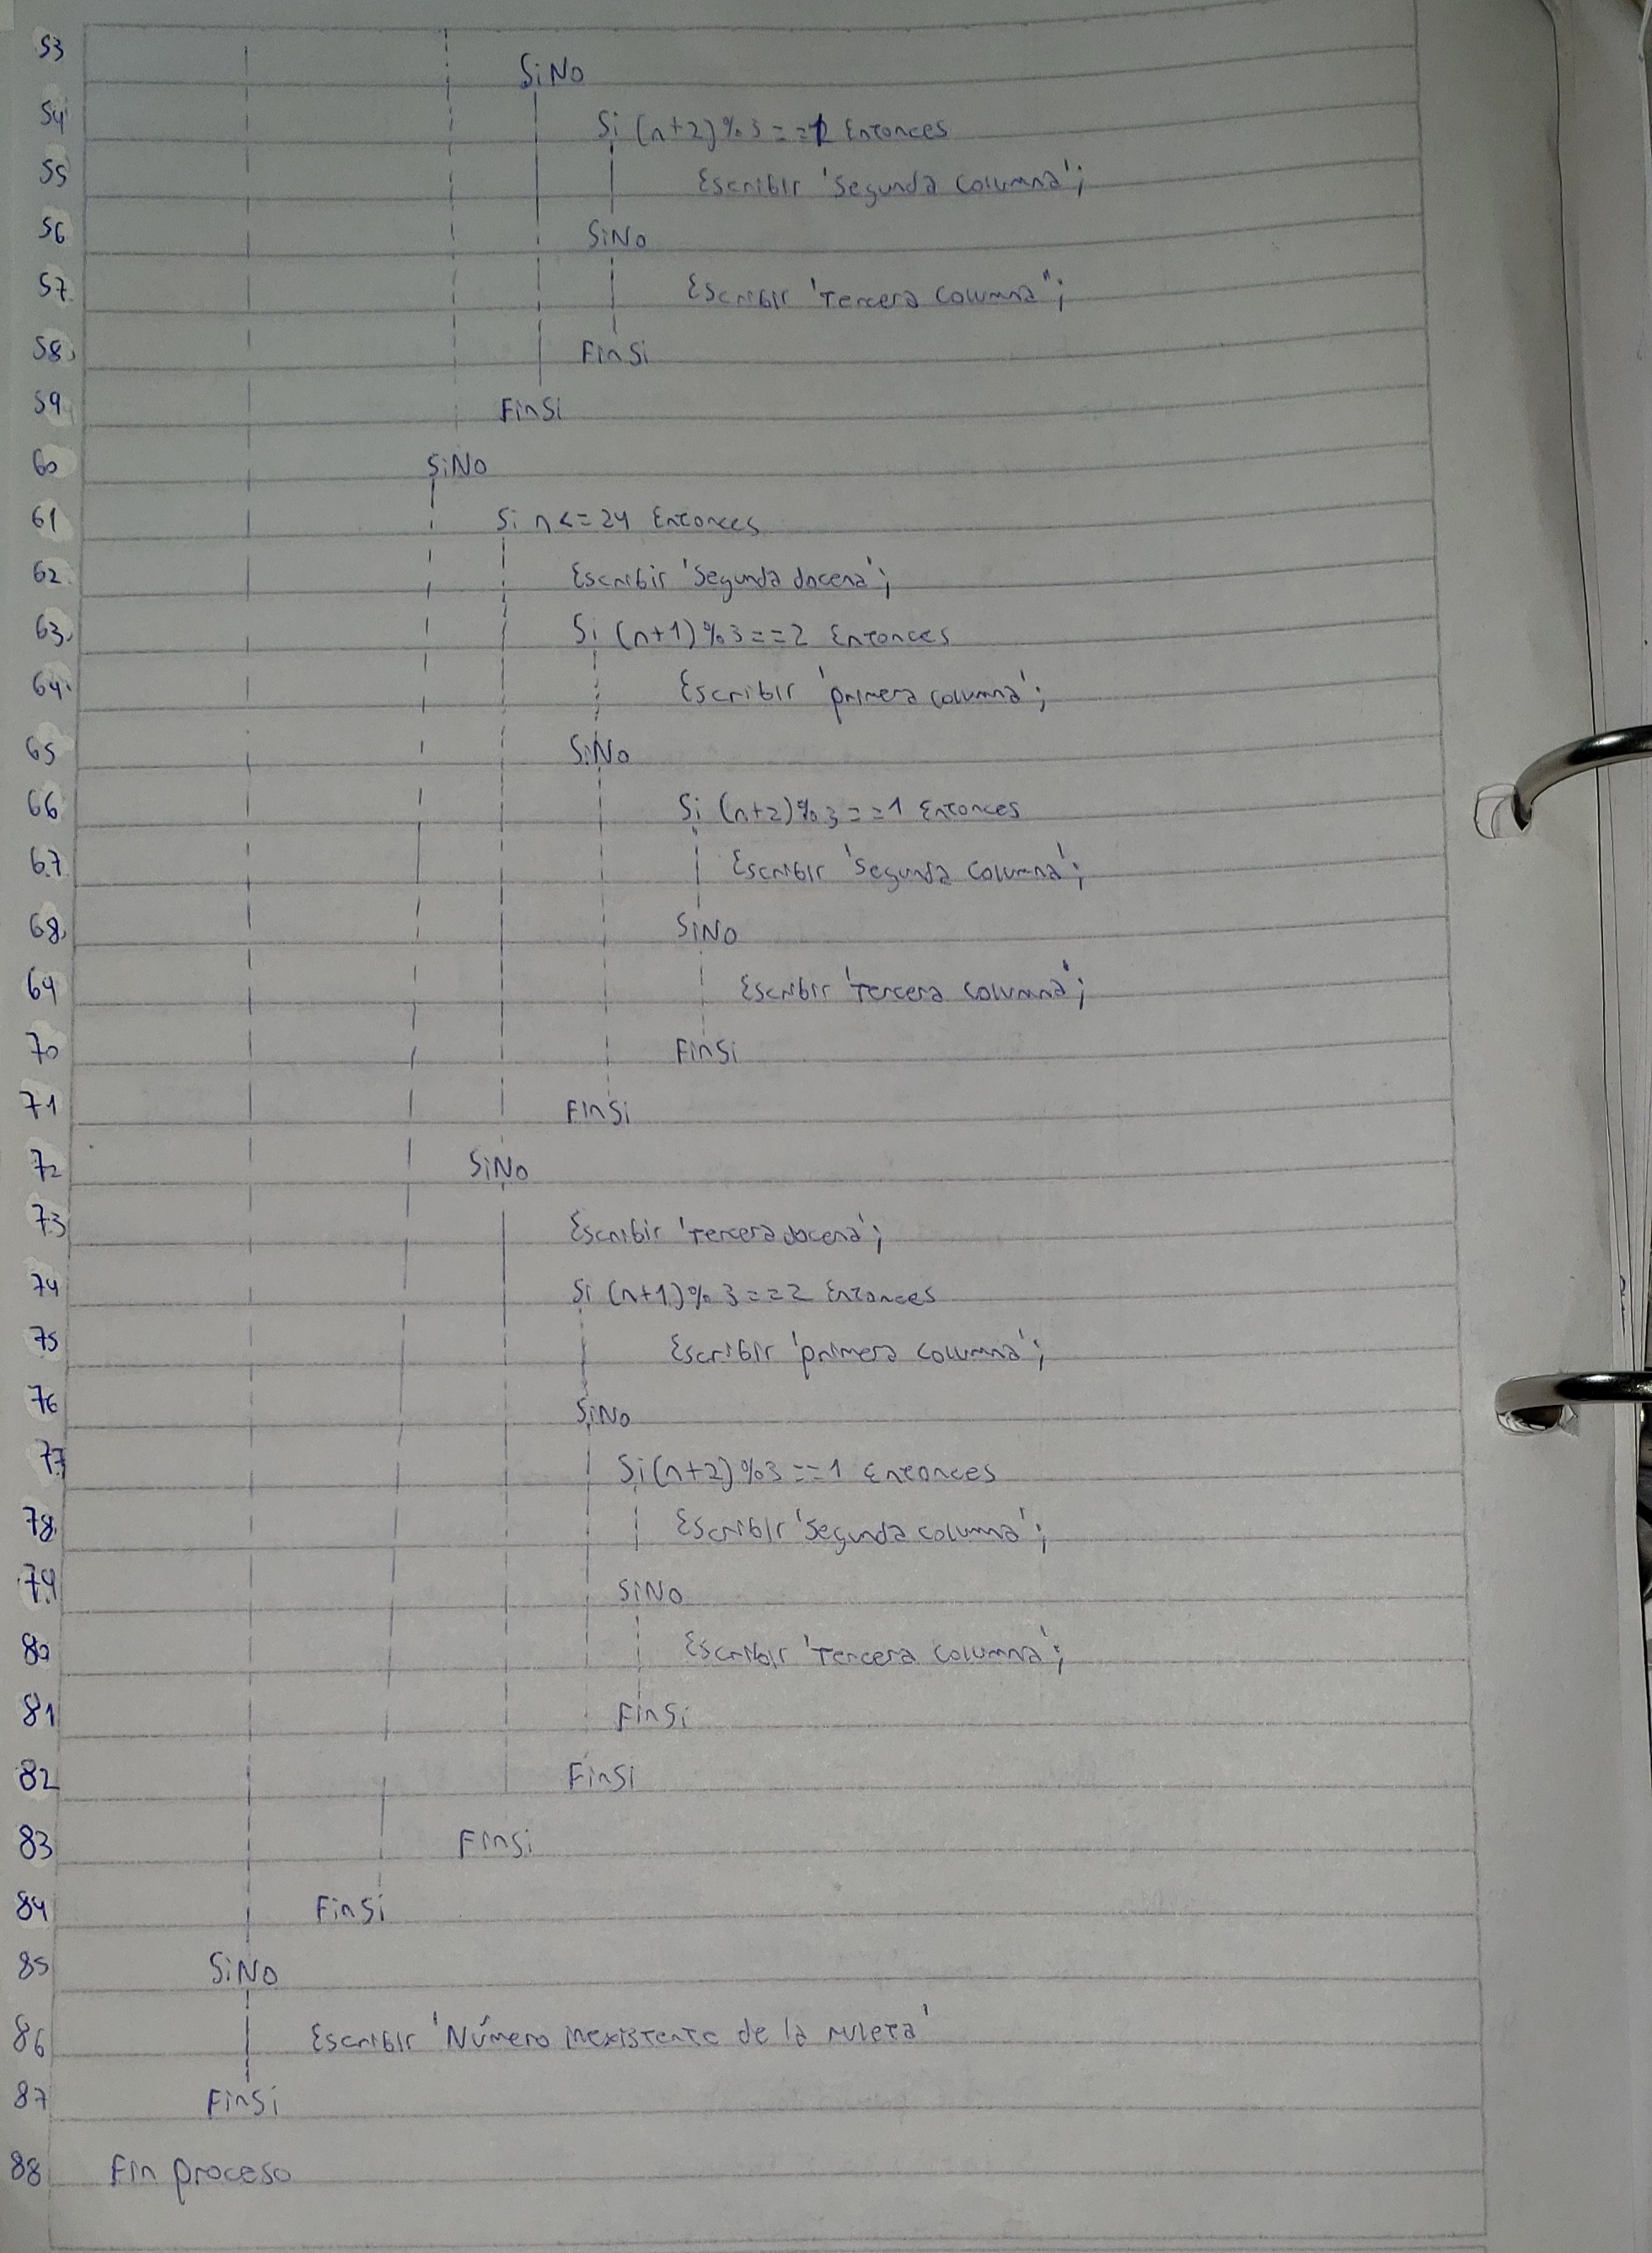 53 SiNo
54 Si (n+2)%3==1 Entonces
55 Escribir 'Segunda columna';
56 SiNo
57 Escribir 'Tercera columna";
58 FinSi
59 FinSi
60 SiNo
61 Si n<=24 Entonces
62 Escribir 'Segunda docena';
63 Si (n+1)%3==2 Entonces
64 Escribir 'primera columna';
65 SiNo
66 Si (n+2)%3==1 Entonces
67 Escribir 'Segunda columna';
68 SiNo
69 Escribir 'Tercera columna';
70 FinSi
71 FinSi
72 SiNo
73 Escribir 'Tercera docena';
74 Si (n+1)%3==2 Entonces
75 Escribir 'primera columna';
76 SiNo
77 Si (n+2)%3==1 Entonces
78 Escribir 'Segunda columna';
79 SiNo
80 Escribir 'Tercera columna';
81 FinSi
82 FinSi
83 FinSi
84 FinSi
85 SiNo
86 Escribir 'Número inexistente de la ruleta'
87 FinSi
88 Fin proceso